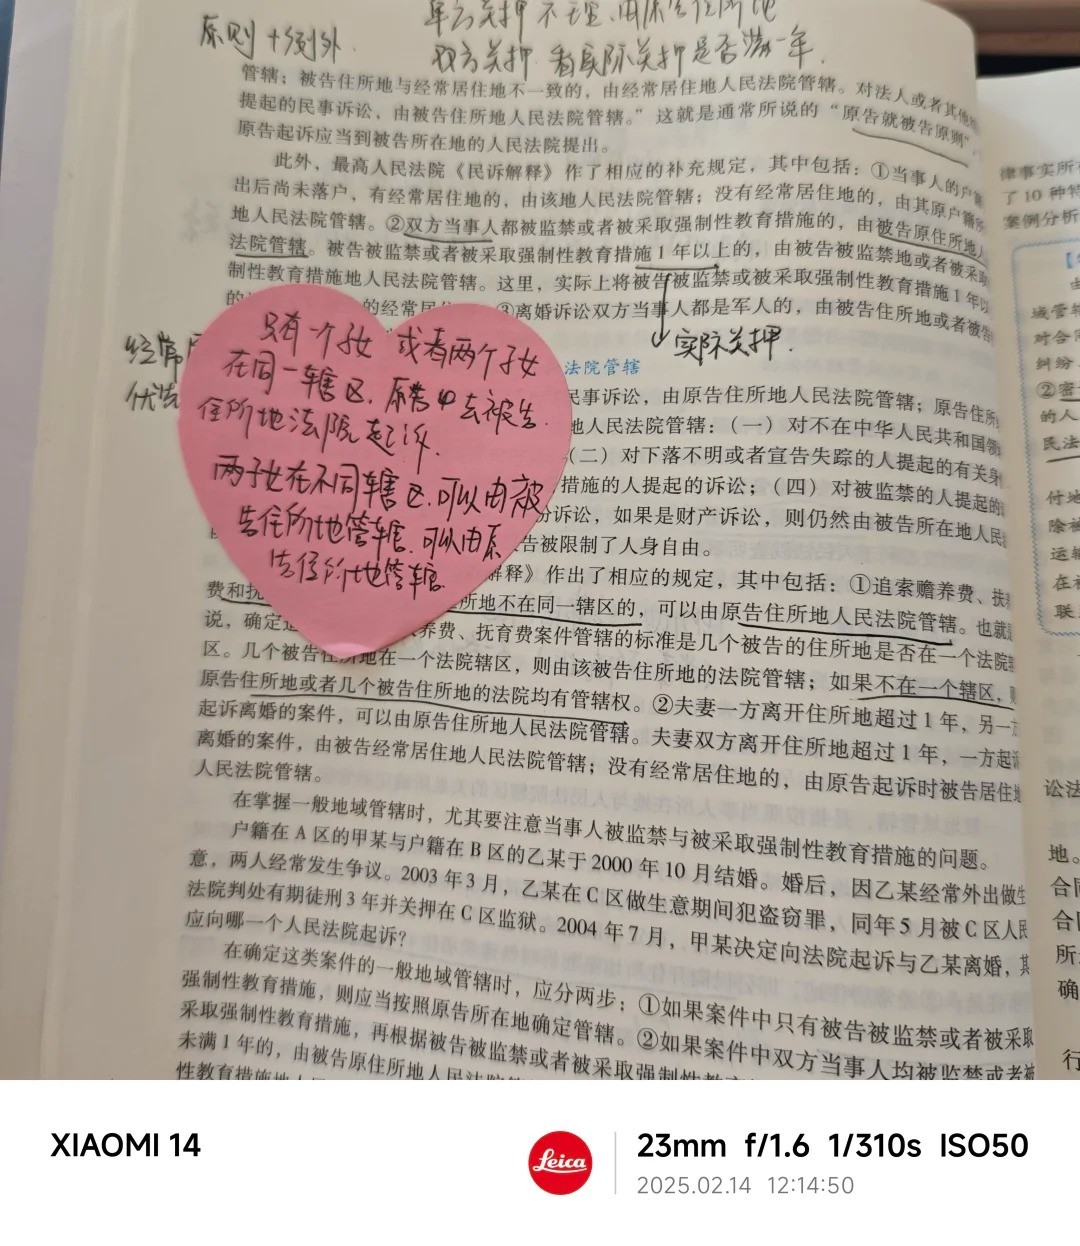 原则+例外
双方关押 看实际关押是否满一年.
管辖；被告住所地与经常居住地不一致的，由经常居住地人民法院管辖。对法人或者其他
提起的民事诉讼，由被告住所地人民法院管辖。”这就是通常所说的“原告就被告原则”
原告起诉应当到被告所在地的人民法院提出。
此外，最高人民法院《民诉解释》作了相应的补充规定，其中包括：①当事人的户籍
出后尚未落户，有经常居住地的，由该地人民法院管辖；没有经常居住地的，由其原户籍所
地人民法院管辖。②双方当事人都被监禁或者被采取强制性教育措施的，由被告原住所地人
法院管辖。被告被监禁或者被采取强制性教育措施1年以上的，由被告被监禁地或者被采取
制性教育措施地人民法院管辖。这里，实际上将被告被监禁或被采取强制性教育措施1年以
的经常居
③离婚诉讼双方当事人都是军人的，由被告住所地或者被告
实际关押.
经常
优先
只有一个子女 或者两个子女
在同一辖区,原告中去被告
住所地法院起诉.
两子女在不同辖区,可以由被
告住所地管辖.可以由原
告住所地管辖
法院管辖
民事诉讼，由原告住所地人民法院管辖；原告住所
地人民法院管辖：（一）对不在中华人民共和国领
（二）对下落不明或者宣告失踪的人提起的有关身
措施的人提起的诉讼；（四）对被监禁的人提起的
诉讼，如果是财产诉讼，则仍然由被告所在地人民
告被限制了人身自由。
解释》作出了相应的规定，其中包括：①追索赡养费、扶
费和抚
所地不在同一辖区的，可以由原告住所地人民法院管辖。也就
说，确定
养费、抚育费案件管辖的标准是几个被告的住所地是否在一个法院
区。几个被告住所地在一个法院辖区，则由该被告住所地的法院管辖；如果不在一个辖区，
原告住所地或者几个被告住所地的法院均有管辖权。②夫妻一方离开住所地超过1年，另一方
起诉离婚的案件，可以由原告住所地人民法院管辖。夫妻双方离开住所地超过1年，一方起
离婚的案件，由被告经常居住地人民法院管辖；没有经常居住地的，由原告起诉时被告居住地
人民法院管辖。
在掌握一般地域管辖时，尤其要注意当事人被监禁与被采取强制性教育措施的问题。
户籍在A区的甲某与户籍在B区的乙某于2000年10月结婚。婚后，因乙某经常外出做生
意，两人经常发生争议。2003年3月，乙某在C区做生意期间犯盗窃罪，同年5月被C区人民
法院判处有期徒刑3年并关押在C区监狱。2004年7月，甲某决定向法院起诉与乙某离婚，
应向哪一个人民法院起诉？
在确定这类案件的一般地域管辖时，应分两步：①如果案件中只有被告被监禁或者被采取
强制性教育措施，则应当按照原告所在地确定管辖。②如果案件中双方当事人均被监禁或者被
采取强制性教育措施，再根据被告被监禁或者被采取强制性教
未满1年的，由被告原住所地人民法院
性教育措施地人
律事实所
了10种特
案例分析
域管辖
对合同
纠纷
②
的人
民法
付地
除被
运输
在
联
讼法
地。
合同
合同
所
确
行
XIAOMI 14
Leica
23mm f/1.6 1/310s ISO50
2025.02.14 12:14:50